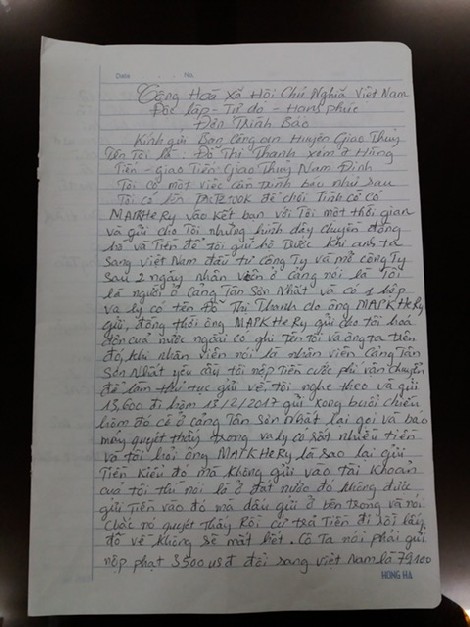 Date No.
Cộng Hoà Xã Hội Chủ Nghĩa Việt Nam
Độc lập - Tự do - Hạnh phúc
Đơn Trình Báo
Kính gửi Ban Công an Huyện Giao Thủy
Tên Tôi là: Đỗ Thị Thanh xóm 9 Hùng
Tiến - Giao Tiến Giao Thủy Nam Định
Tôi có một việc cần trình báo như sau
Tôi có lên để chơi Tình cờ có
MAPKHeRy vào kết bạn với Tôi một thời gian
và gửi cho Tôi những hình dây chuyền đồng
hồ và Tiền để Tôi giữ hộ Trước khi anh ta
sang Việt Nam đầu tư Công Ty và mở công Ty
sau 2 ngày nhân viên ở cảng nói là Tôi
là người ở Cảng Tân Sơn Nhất và có 1 hộp
va ly có tên Đỗ Thị Thanh do ông MAPKHeRy
gửi, đồng thời ông MAPKHeRy gửi cho tôi hoá
đơn của nước ngoài có ghi tên tôi và ông ta trên
đó, khi nhân viên nói là nhân viên Cảng Tân
Sơn Nhất yêu cầu tôi nộp Tiền cước phí vận chuyển
để làm thủ tục gửi về tôi nghe theo và gửi
15,600 đi hôm 15/2/2017 gửi xong buổi chiều
hôm đó cô ở cảng Tân Sơn Nhất lại gọi và báo
máy quyét thấy trong va ly có rất nhiều tiền
và tôi hỏi ông MAPKHeRy là sao lại gửi
Tiền kiểu đó mà không gửi vào tài khoản
của tôi thì nói là ở đất nước đó không được
gửi Tiền vào đó mà dấu gửi ở bên trong và nói
cước nó quyét thấy Rồi cứ trả Tiền đi rồi lấy
đồ về không sẽ mất hết. Cô Ta nói phải gửi
nộp phạt 3500 usd đổi sang Việt Nam là 79100
HONG HA